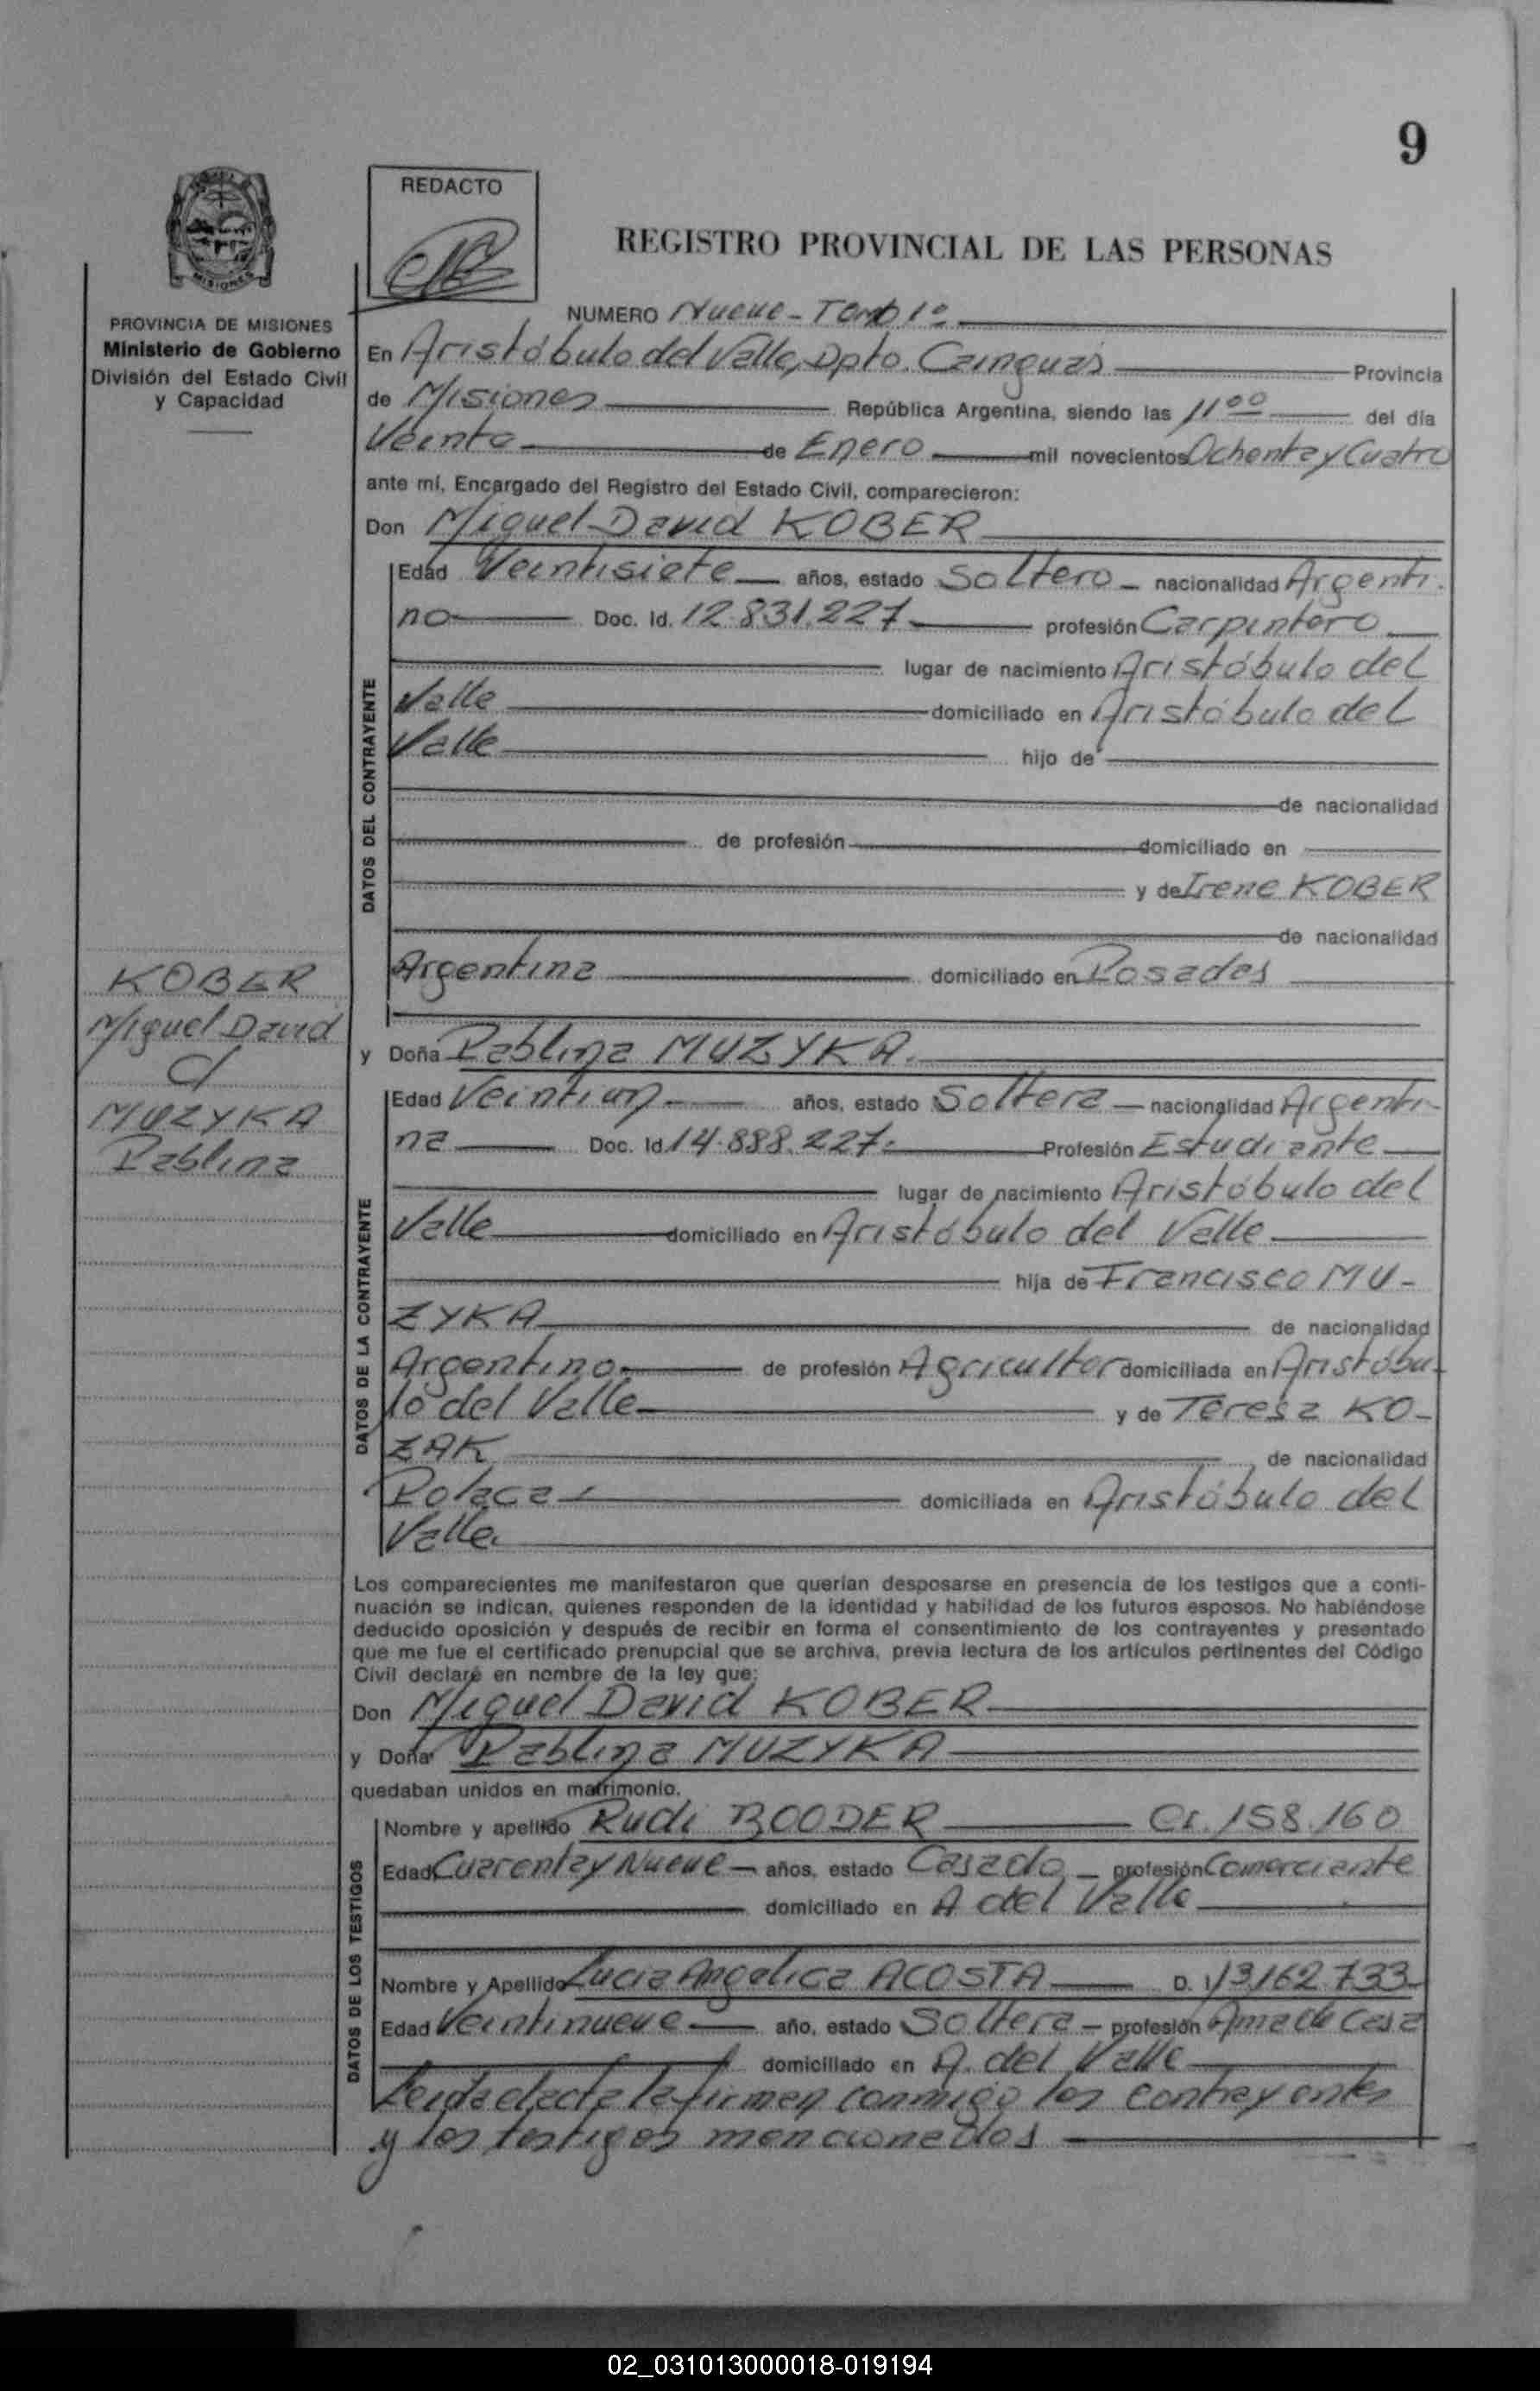 9
REDACTO
REGISTRO PROVINCIAL DE LAS PERSONAS
MISIONES
PROVINCIA DE MISIONES
Ministerio de Gobierno
División del Estado Civil
y Capacidad
NUMERO Nueve - Tomo 1º
En Aristóbulo del Valle, Dpto. Cainguás Provincia
de Misiones República Argentina, siendo las 11 00 del día
Veinte de Enero mil novecientos Ochenta y Cuatro
ante mí, Encargado del Registro del Estado Civil, comparecieron:
Don Miguel David KOBER
DATOS DEL CONTRAYENTE
Edad Veintisiete años, estado Soltero nacionalidad Argenti-
no Doc. Id. 12.831.227 profesión Carpintero
lugar de nacimiento Aristóbulo del
Valle domiciliado en Aristóbulo del
Valle hijo de
de nacionalidad
de profesión domiciliado en
y de Irene KOBER
de nacionalidad
Argentina domiciliado en Posadas
KOBER
Miguel David
c/
MUZYKA
Pablina
y Doña Pablina MUZYKA.
DATOS DE LA CONTRAYENTE
Edad Veintiun años, estado Soltera nacionalidad Argenti-
na Doc. Id. 14.888.227. Profesión Estudiante
lugar de nacimiento Aristóbulo del
Valle domiciliado en Aristóbulo del Valle
hija de Francisco MU-
ZYKA de nacionalidad
Argentino de profesión Agricultor domiciliada en Aristóbu-
lo del Valle y de Teresa KO-
ZAK de nacionalidad
Polaca domiciliada en Aristóbulo del
Valle.
Los comparecientes me manifestaron que querían desposarse en presencia de los testigos que a conti-
nuación se indican, quienes responden de la identidad y habilidad de los futuros esposos. No habiéndose
deducido oposición y después de recibir en forma el consentimiento de los contrayentes y presentado
que me fue el certificado prenupcial que se archiva, previa lectura de los artículos pertinentes del Código
Civil declaré en nombre de la ley que:
Don Miguel David KOBER
y Doña Pablina MUZYKA
quedaban unidos en matrimonio.
DATOS DE LOS TESTIGOS
Nombre y apellido Rudi BOODER CI. 158.160
Edad Cuarenta y Nueve años, estado Casado profesión Comerciante
domiciliado en A del Valle
Nombre y Apellido Lucia Angelica ACOSTA D. I 13162733
Edad Veintinueve año, estado Soltera profesión Ama de Casa
domiciliado en A. del Valle
Leida el acta la firman conmigo los contrayentes
y los testigos mencionados
02_031013000018-019194